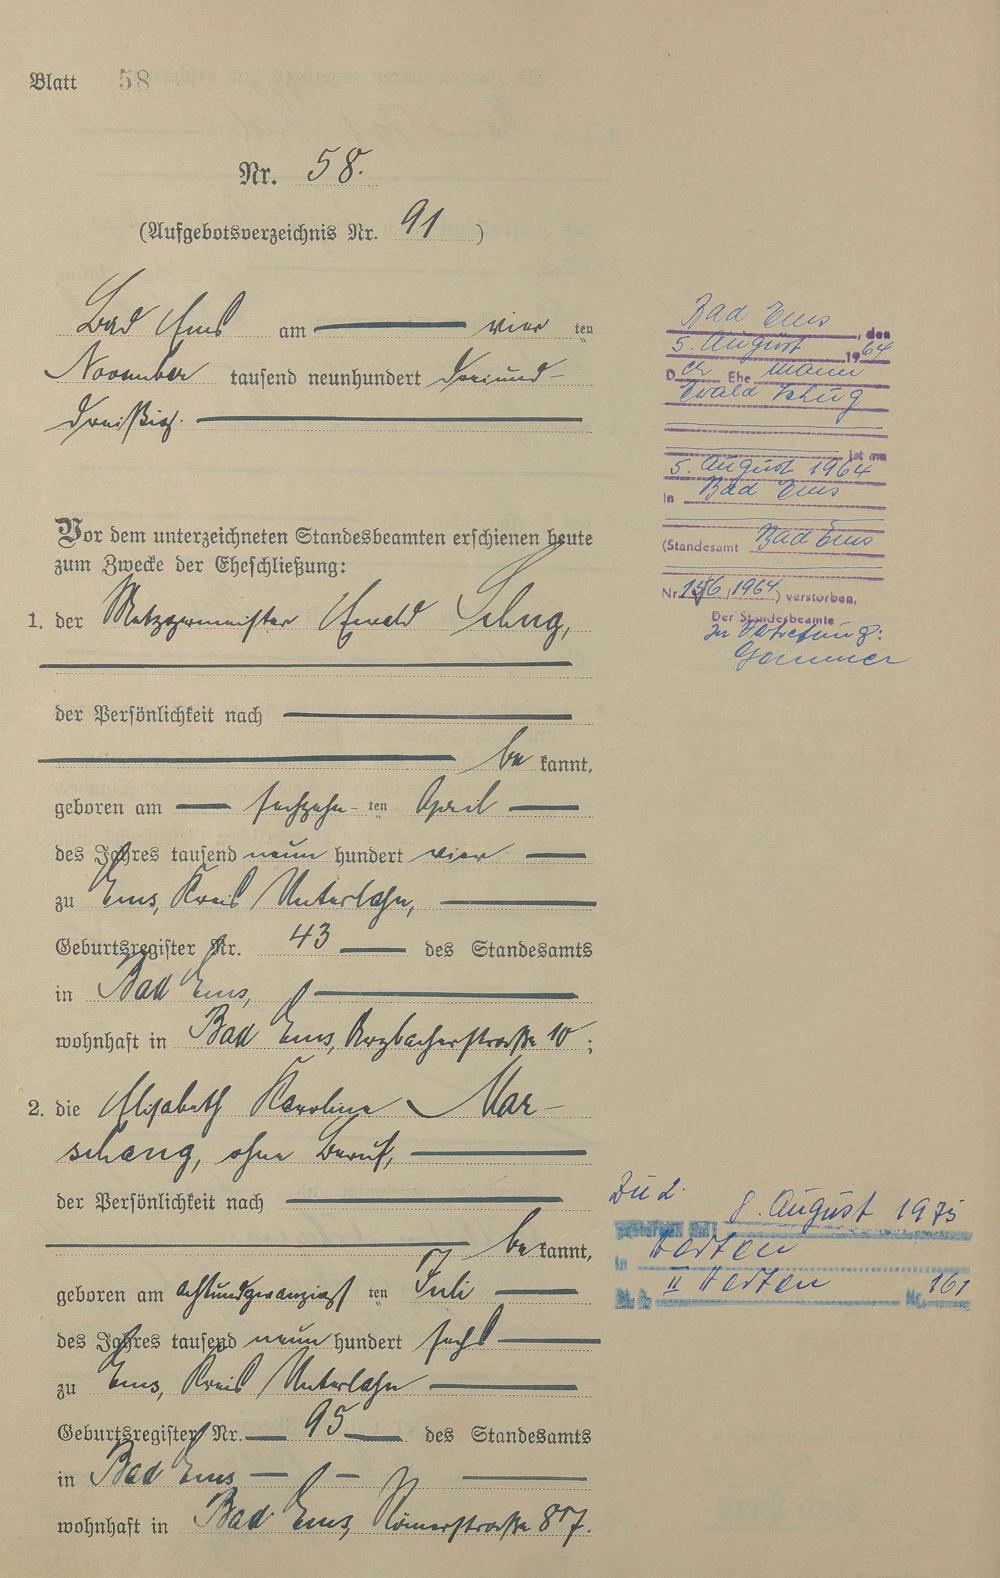 Blatt 58
Nr. 58.
(Aufgebotsverzeichnis Nr. 91)
Bad Ems am vier ten
November tausend neunhundert dreiund-
dreißig.
Vor dem unterzeichneten Standesbeamten erschienen heute
zum Zwecke der Eheschließung:
1. der Metzgermeister Ewald Schug,
der Persönlichkeit nach
be kannt,
geboren am sechzehn- ten April
des Jahres tausend neun hundert vier
zu Ems, Kreis Unterlahn,
Geburtsregister Nr. 43 des Standesamts
in Bad Ems,
wohnhaft in Bad Ems, Arzbacherstraße 10;
2. die Elisabeth Karoline Mar-
schang, ohne Beruf,
der Persönlichkeit nach
be kannt,
geboren am achtundzwanzigs ten Juli
des Jahres tausend neun hundert sechs
zu Ems, Kreis Unterlahn
Geburtsregister Nr. 95 des Standesamts
in Bad Ems
wohnhaft in Bad Ems, Römerstraße 87.
Bad Ems, den
5. August 1964
Der Ehemann
Ewald Schug
ist am
5. August 1964
in Bad Ems
(Standesamt Bad Ems
Nr. 156/1964) verstorben.
Der Standesbeamte
In Vertretung:
Zu 2.
gestorben am: 8. August 1975
in Herten
St. A. II Herten Nr. 161